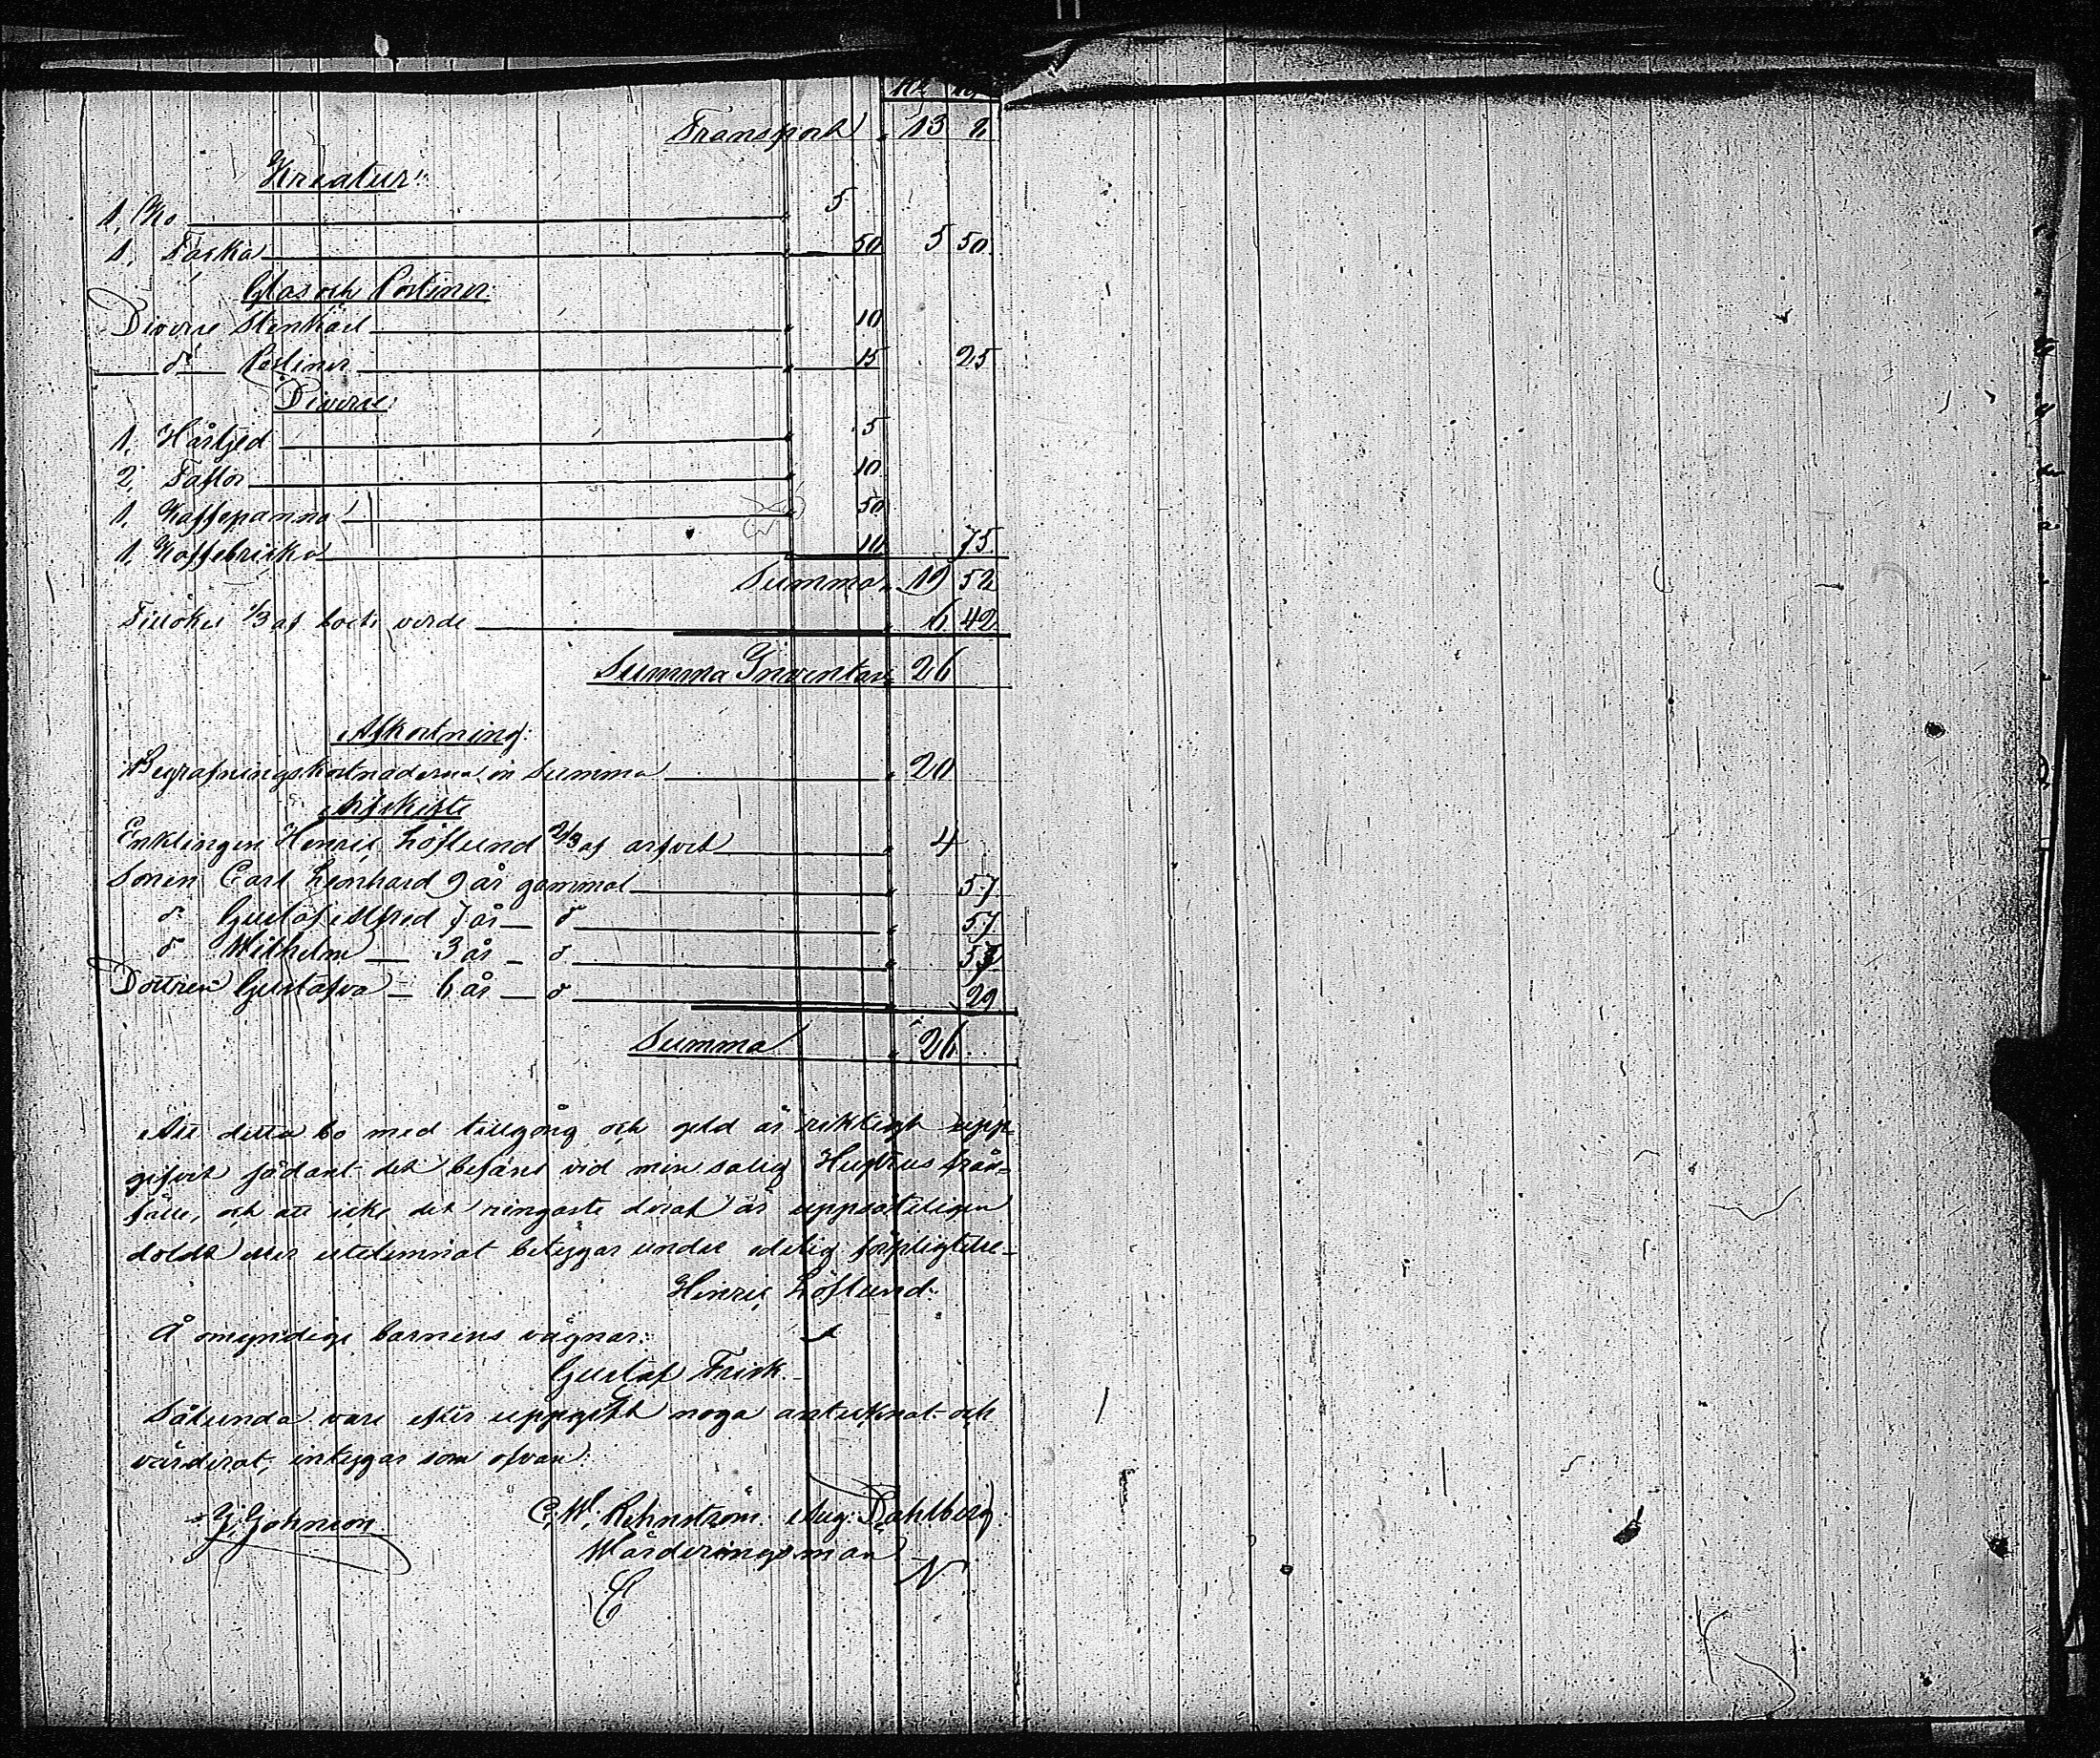 Transport 13 2
Kreatur:
1, Ko 5
1, Tacka 50 5 50
Glas och Porsliner:
Diverse Stenkäril 10
d:o Porsliner 15 25
Diverse:
1, Hårbjed 5
2, Taflor 10
1, Kaffepanna 50
1, Kaffebricka 10 75
Summa 19 52
Tillökes 1/3 af boets värde 6 42
Summa Inventari 26
Afkortning:
Begrafningskostnaderna in Summa 20
Arfskifte
Enklingen Henric Löflund 2/3 af arfvet 4
Sonen Carl Leonhard 9 år gammal 57
d:o Gustaf Alfred 7 år d:o 57
d:o Wilhelm 3 år d:o 57
Dottren Gustafva 6 år d:o 29
Summa 26
Att detta bo med tillgång och geld är riktigt upp-
gifvet sådant det befans vid min salig Hustrus från-
fälle, och att icke det ringaste deraf är uppsåtligen
doldt eller utelemnat betygar under edelig förpligtelse-
Henric Löflund.
Å omyndige barnens vägnar:
Gustaf Frisk.
Sålunda vara efter uppgift noga antecknat och
värderat, intygar som ofvan:
J. Johnson C. W. Rehnström. Aug: Dahlberg.
Wärderingsmän